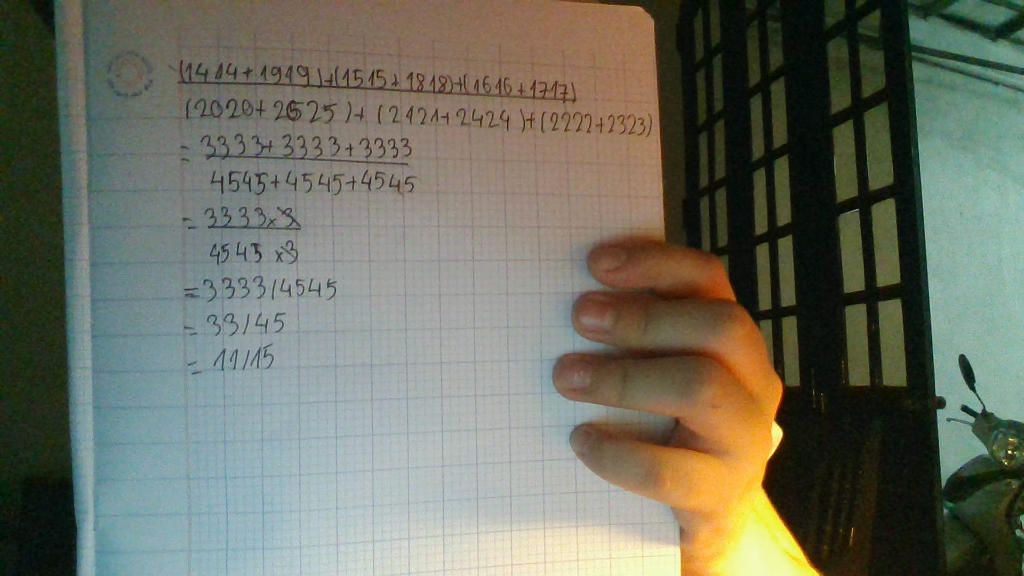 (1414+1919)+(1515+1818)+(1616+1717)
(2020+2525)+(2121+2424)+(2222+2323)
= 3333+3333+3333
4545+4545+4545
= 3333×3
4545×3
=3333/4545
= 33/45
= 11/15